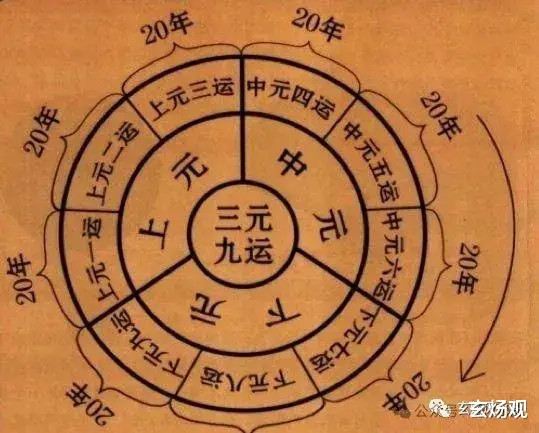 三元
九运
上元
中元
下元
上元一运
上元二运
上元三运
中元四运
中元五运
中元六运
下元七运
下元八运
下元九运
20年
20年
20年
20年
20年
20年
20年
20年
玄炀观